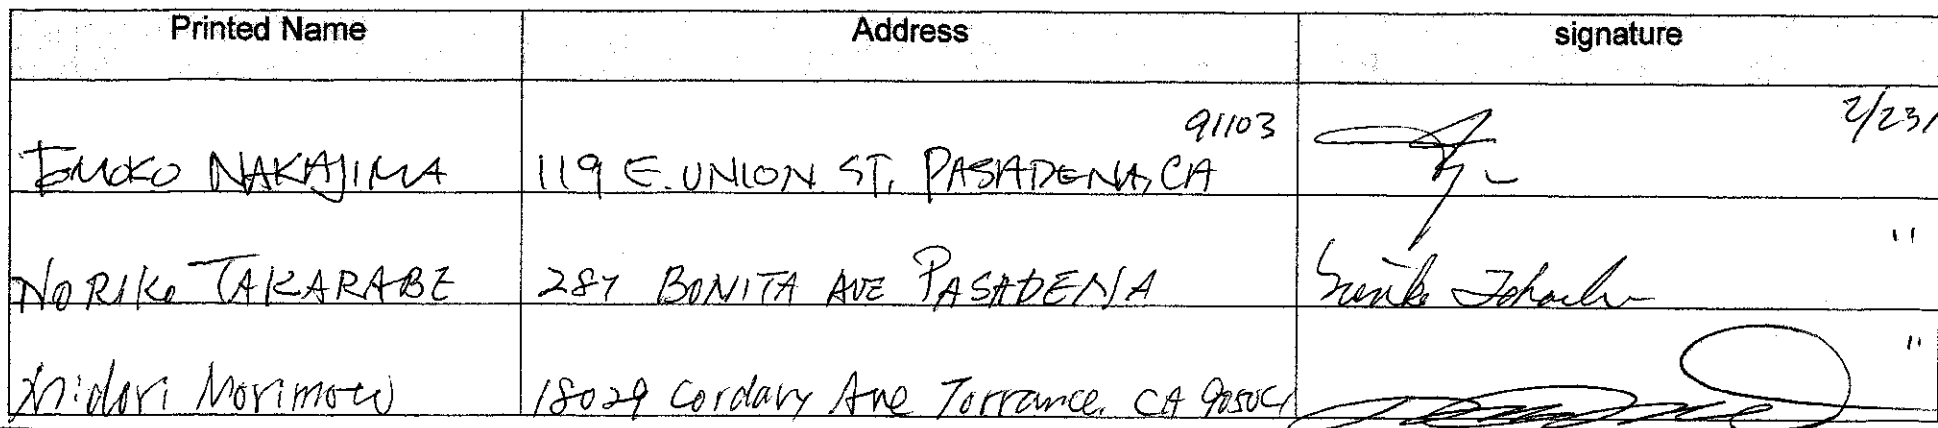 Printed Name Address signature
TOMOKO NAKAJIMA 119 E. UNION ST, PASADENA, CA 91103 2/23/
NORIKO TAKARABE 287 BONITA AVE PASADENA "
Midori Morimoto 18029 Cordary Ave Torrance, CA "